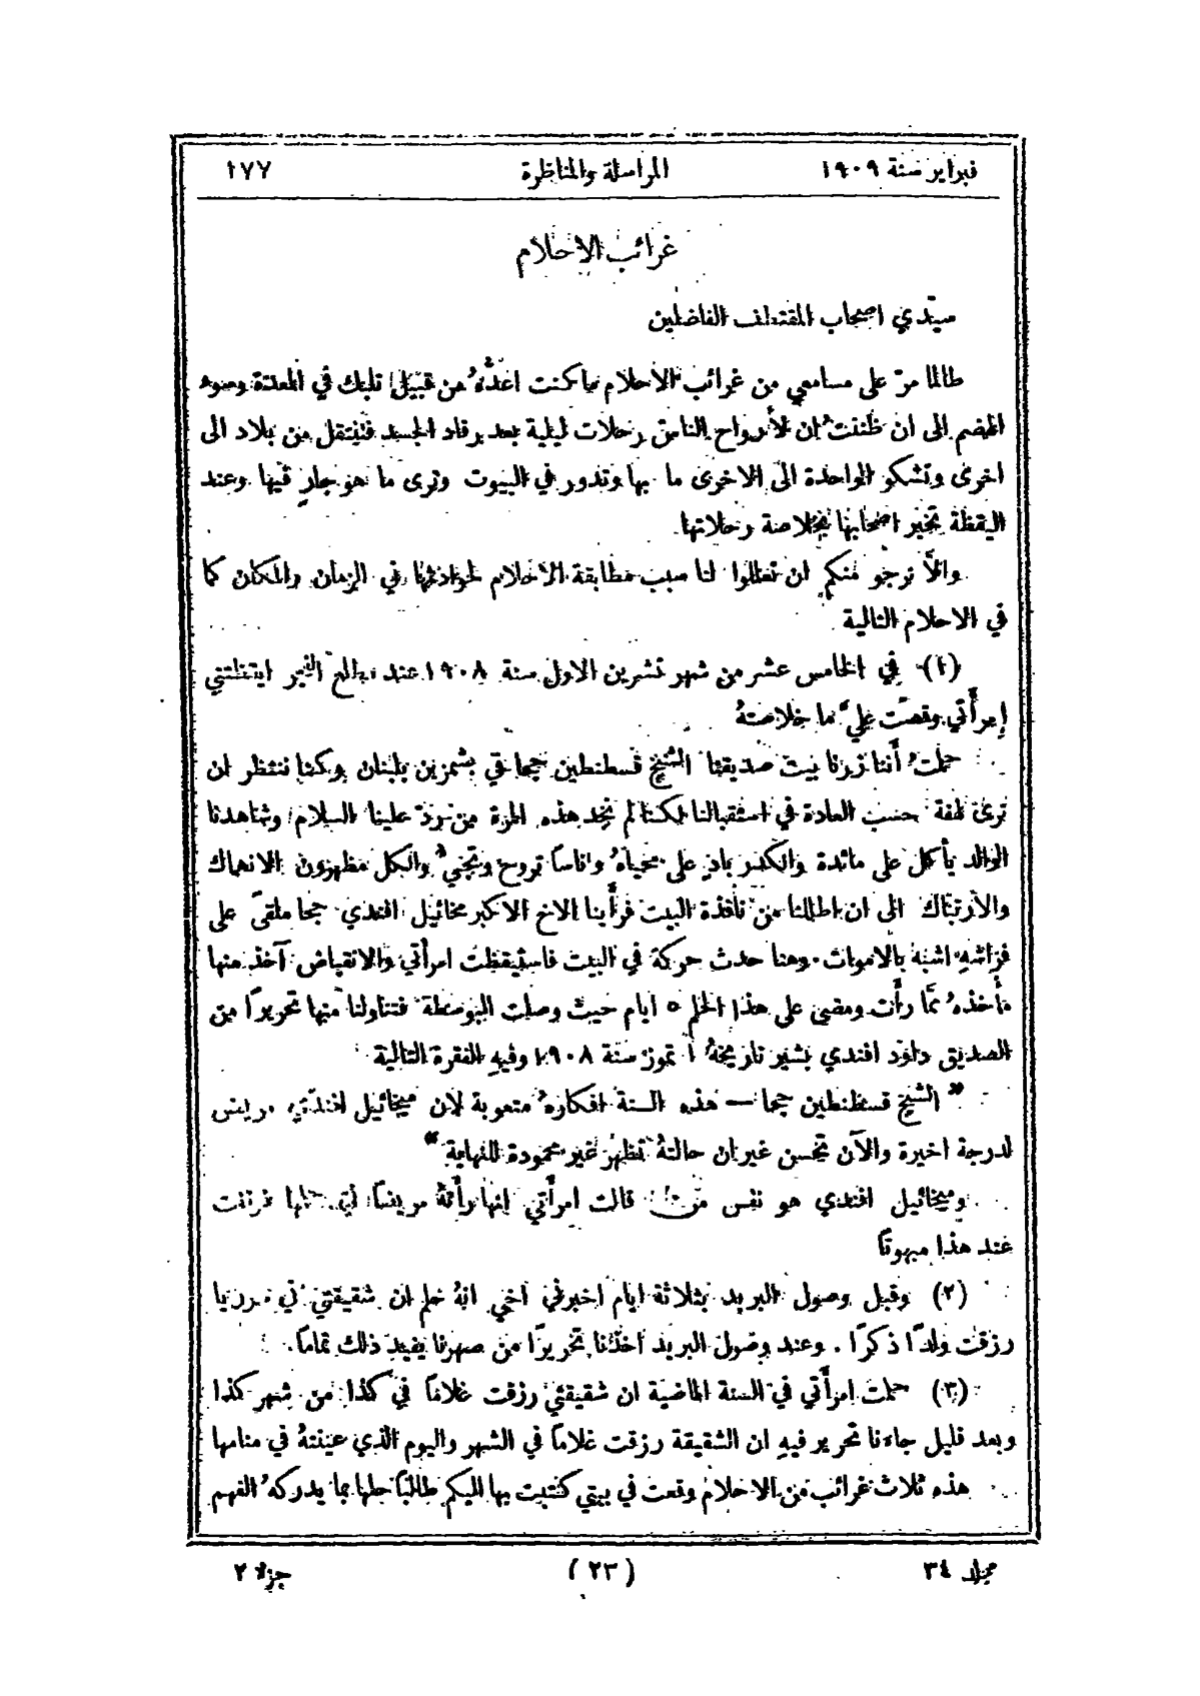 فبراير سنة ١٩٠٩ المراسلة والمناظرة ١٧٧
غرائب الاحلام
سيّدي اصحاب المقتطف الفاضلين
طالما مرّ على مسامعي من غرائب الاحلام ما كنت اعدُّهُ من قبيل تلبك في المعدة وسوء
الهضم الى ان ظننتُ ان لأرواح الناس رحلات ليلية بعد رقاد الجسد فتنتقل من بلاد الى
اخرى وتشكو الواحدة الى الاخرى ما بها وتدور في البيوت وترى ما هو جارٍ فيها وعند
اليقظة تخبر اصحابها بخلاصة رحلاتها.
والاّ نرجو منكم ان تعللوا لنا سبب مطابقة الاحلام لحوادثها في الزمان والمكان كما
في الاحلام التالية
(١) في الخامس عشر من شهر تشرين الاول سنة ١٩٠٨ عند الفجر ايقظتني
إمرأتي وقصّت عليَّ ما خلاصتهُ
حلمتُ أننا زرنا بيت صديقنا الشيخ قسطنطين جحا في بشمزين بلبنان وكنا ننتظر ان
نرى لهفة حسب العادة في استقبالنا لكننا لم نجد هذه المرة من يردّ علينا السلام وشاهدنا
الوالد يأكل على مائدة والكدر بادٍ على محياهُ واناساً تروح وتجيءُ والكل مظهرون الانهماك
والارتباك الى ان اطللنا من نافذة البيت فرأينا الاخ الاكبر مخائيل افندي جحا ملقىً على
فراشهِ اشبه بالاموات. وهنا حدث حركة في البيت فاستيقظت امرأتي والانقباض آخذ منها
مأخذهُ ممّا رأت ومضى على هذا الحلم ٥ ايام حيث وصلت البوسطة فتناولنا منها تحريراً من
الصديق داود افندي بشير تاريخهُ ١ تموز سنة ١٩٠٨ وفيهِ الفقرة التالية
" الشيخ قسطنطين جحا — هذه السنة افكارهُ متعوبة لان ميخائيل افندي مريض
لدرجة اخيرة والآن تحسن غير ان حالتهُ تظهر غير محمودة للنهاية "
وميخائيل افندي هو نفس من قالت امرأتي انها رأتهُ مريضاً في حلمها فوقفت
عند هذا مبهوتاً
(٢) وقبل وصول البريد بثلاثة ايام اخبرني اخي انهُ حلم ان شقيقتي في سوريا
رزقت ولداً ذكراً. وعند وصول البريد اخذنا تحريراً من صهرنا يفيد ذلك تماماً.
(٣) حلمت امرأتي في السنة الماضية ان شقيقتي رزقت غلاماً في كذا من شهر كذا
وبعد قليل جاءنا تحرير فيهِ ان الشقيقة رزقت غلاماً في الشهر واليوم الذي عينتهُ في منامها
هذه ثلاث غرائب من الاحلام وقعت في بيتي كتبت بها اليكم طالباً حلها بما يدركهُ الفهم
مجلد ٣٤ (٢٣) جزء ٢